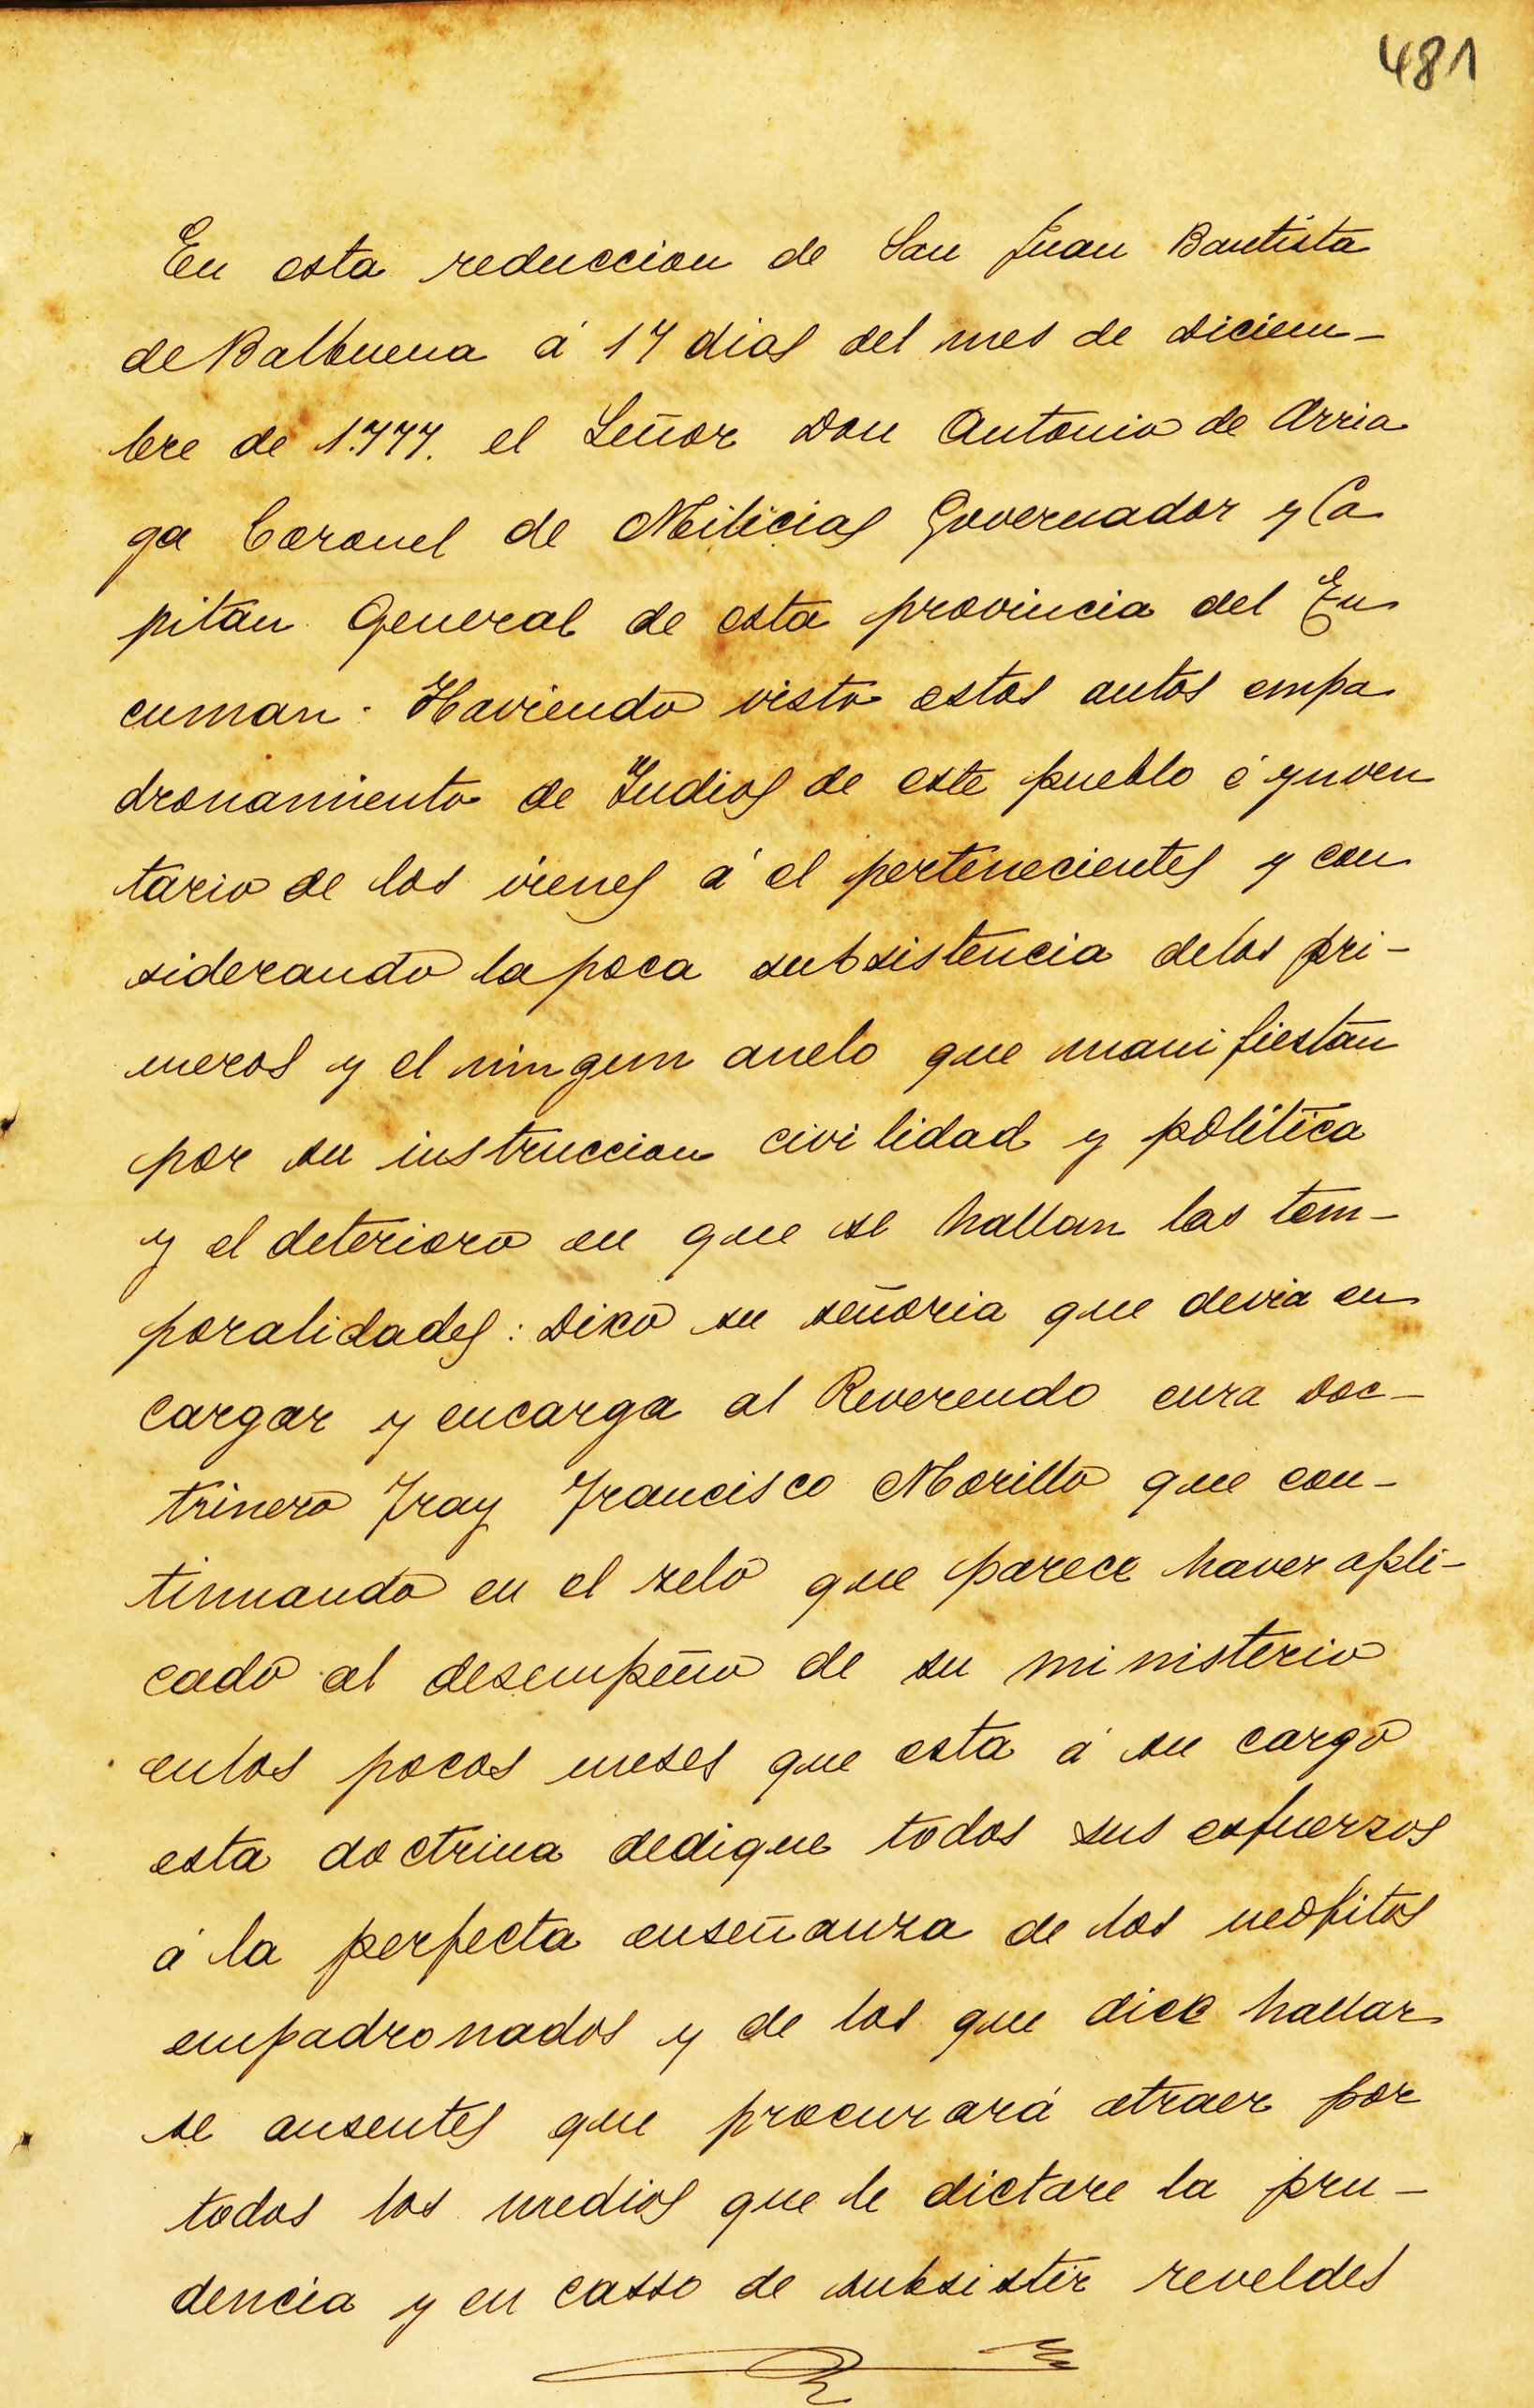 481
En esta reduccion de San Juan Bautista
de Balbuena á 17 dias del mes de Diciem-
bre de 1.777. el Señor Don Antonio de Arria
ga Coronel de Milicias Governador y Ca
pitan General de esta provincia del Tu
cuman. Haviendo visto estos autos empa
dronamiento de Indios de este pueblo é ynven
tario de los vienes á el pertenecientes y con
siderando la poca subsistencia delos pri-
meros y el ningun anelo que manifiestan
por su instruccion civilidad y politica
y el deterioro en que se hallan las tem-
poralidades: Dixo su señoria que devia en
cargar y encarga al Reverendo cura Doc-
trinero Fray Francisco Morillo que con-
tinuando en el zelo que parece haver apli-
cado al desempeño de su ministerio
enlos pocos meses que esta á su cargo
esta doctrina dedique todos sus esfuerzos
á la perfecta enseñanza de los neofitos
empadronados y de los que dice hallar
se ausentes que procurará atraer por
todos los medios que le dictare la pru-
dencia y en casso de subsistir reveldes